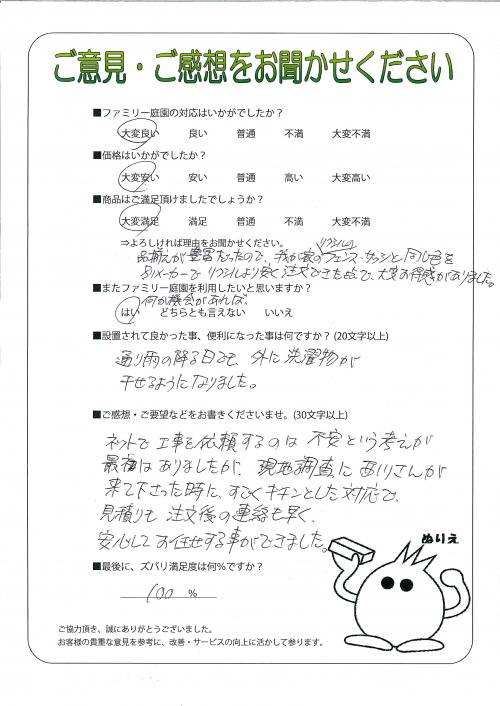 ご意見・ご感想をお聞かせください
■ファミリー庭園の対応はいかがでしたか？
大変良い 良い 普通 不満 大変不満
■価格はいかがでしたか？
大変安い 安い 普通 高い 大変高い
■商品はご満足頂けましたでしょうか？
大変満足 満足 普通 不満 大変不満
⇒よろしければ理由をお聞かせください。
リクシルの
品揃えが豊富だったので、我が家のフェンス・サッシと同じ色を
別メーカーでリクシルより安く注文できた点で、大変お得感がありました。
■またファミリー庭園を利用したいと思いますか？
何か機会があれば
はい どちらとも言えない いいえ
■設置されて良かった事、便利になった事は何ですか？(20文字以上)
通り雨の降る日でも、外に洗濯物が
干せるようになりました。
■ご感想・ご要望などをお書きくださいませ。(30文字以上)
ネットで工事を依頼するのは不安という考えが
最初はありましたが、現地調査に さんが
来て下さった時に、すごくキチンとした対応で、
見積りも注文後の連絡も早く、
安心してお任せする事ができました。
ぬりえ
■最後に、ズバリ満足度は何％ですか？
100 ％
ご協力頂き、誠にありがとうございました。
お客様の貴重な意見を参考に、改善・サービスの向上に活かして参ります。